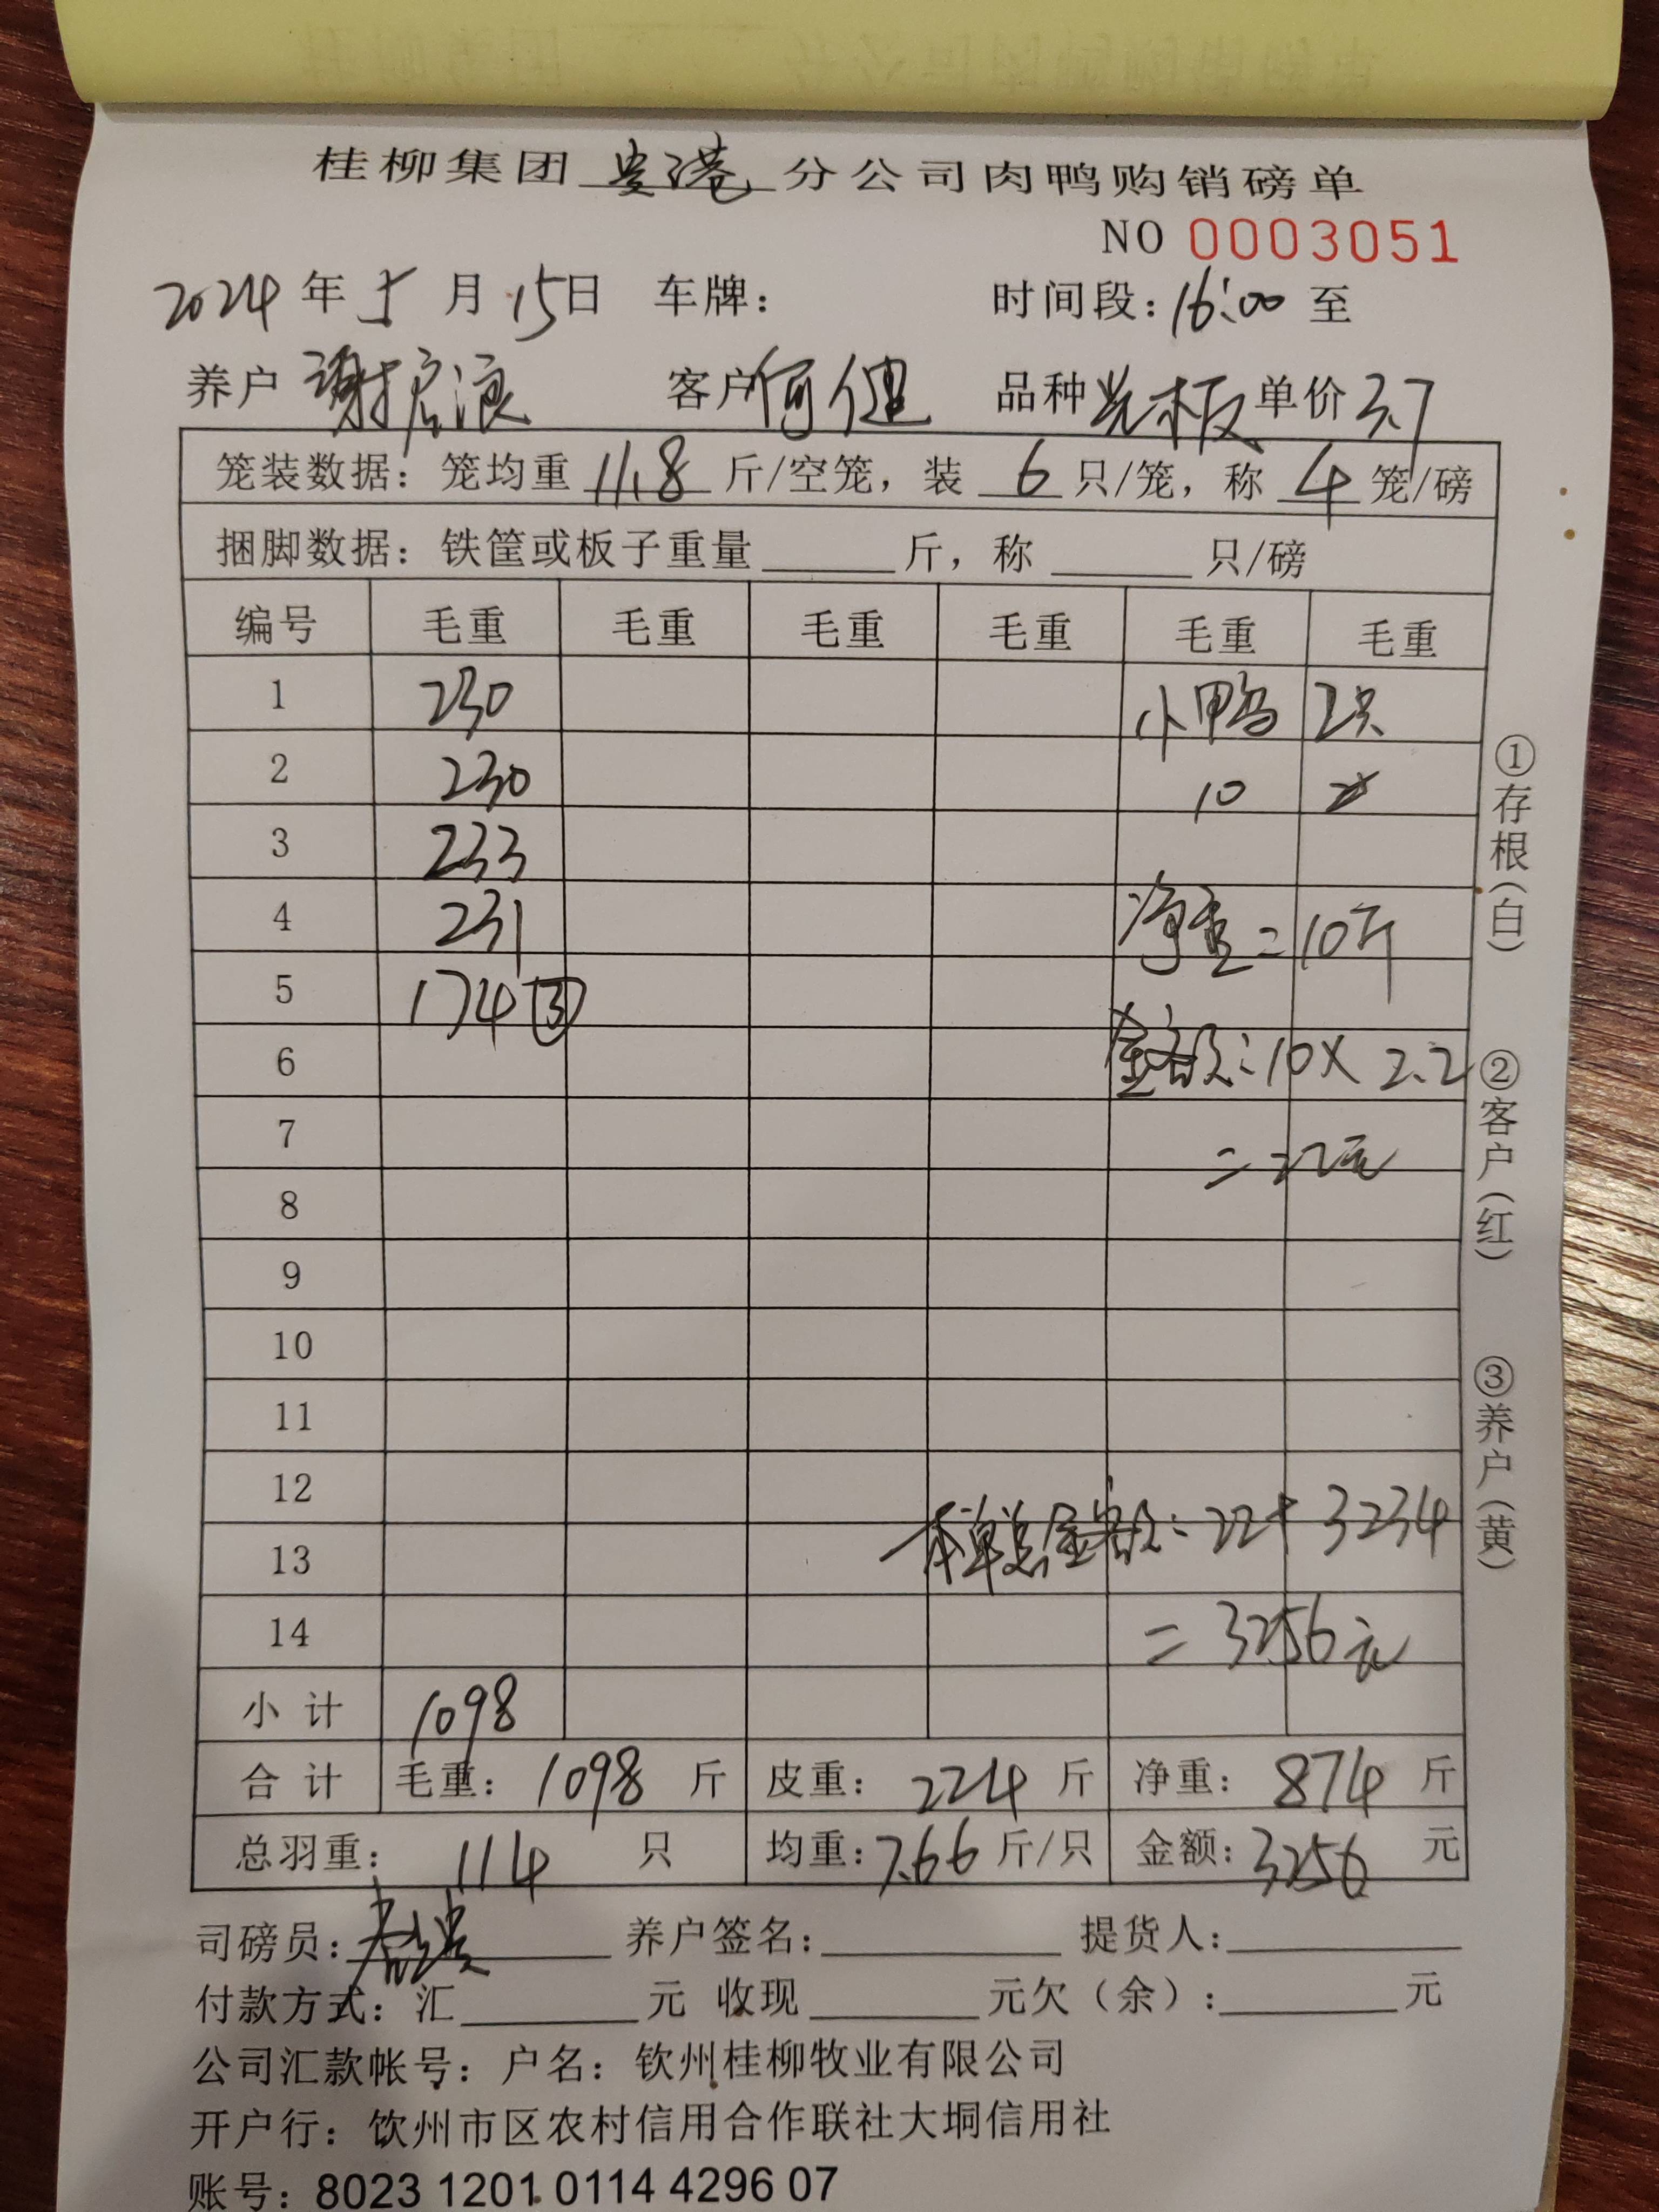 桂柳集团 贵港 分公司肉鸭购销磅单
NO 0003051
2024 年 5 月 15 日 车牌： 时间段：16:00 至
养户 谢启浪 客户 何健 品种 光板 单价 3.7
笼装数据：笼均重 11.8 斤/空笼，装 6 只/笼，称 4 笼/磅
捆脚数据：铁筐或板子重量 斤，称 只/磅
编号 毛重 毛重 毛重 毛重 毛重 毛重
1 230 小鸭 2只
2 230 10
3 233
4 231 净重=10斤
5 174 ③
6 金额：10X 2.2
7 =22元
8
9
10
11
12
13 本单总金额：22+3234
14 =3256元
小计 1098
合计 毛重：1098 斤 皮重：224 斤 净重：874 斤
总羽重：114 只 均重：7.66 斤/只 金额：3256 元
司磅员： 养户签名： 提货人：
付款方式：汇 元 收现 元欠（余）： 元
公司汇款帐号：户名：钦州桂柳牧业有限公司
开户行：钦州市区农村信用合作联社大垌信用社
账号：8023 1201 0114 4296 07
①存根（白）
②客户（红）
③养户（黄）